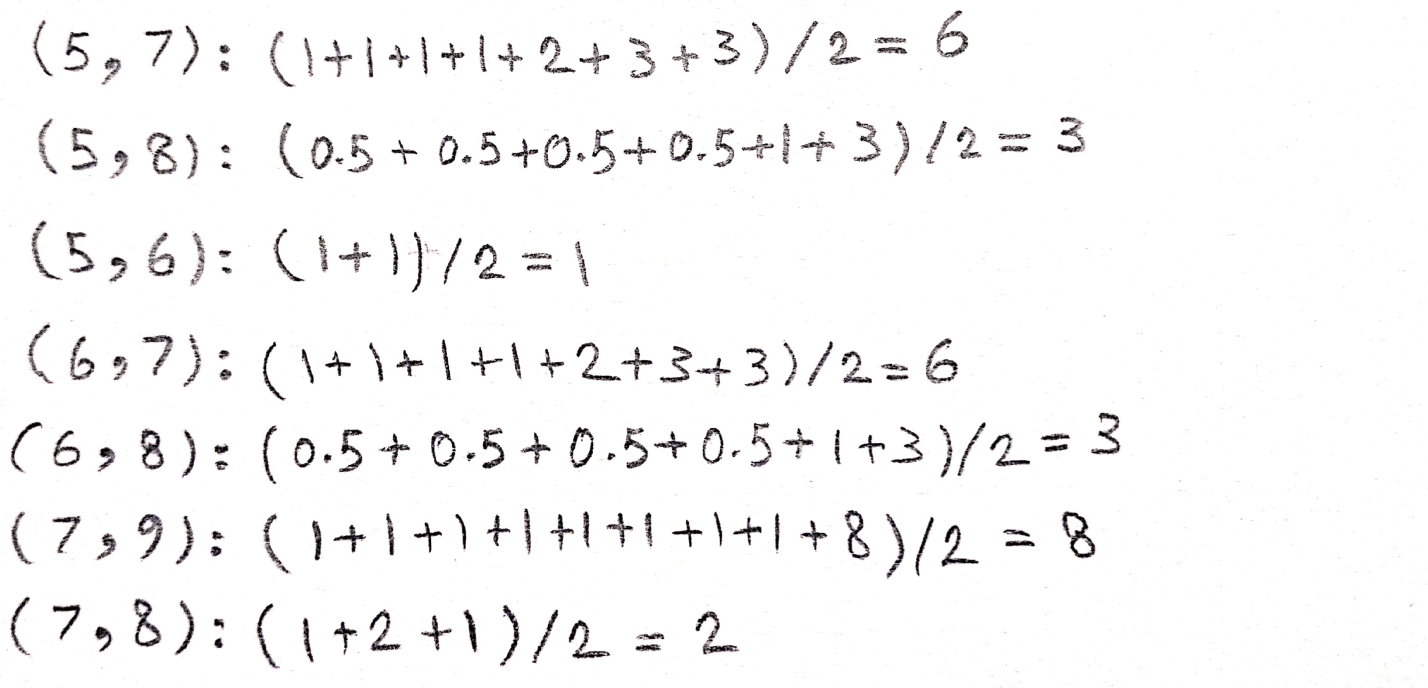 (5,7): (1+1+1+1+2+3+3)/2=6
(5,8): (0.5+0.5+0.5+0.5+1+3)/2=3
(5,6): (1+1)/2=1
(6,7): (1+1+1+1+2+3+3)/2=6
(6,8): (0.5+0.5+0.5+0.5+1+3)/2=3
(7,9): (1+1+1+1+1+1+1+1+8)/2=8
(7,8): (1+2+1)/2=2